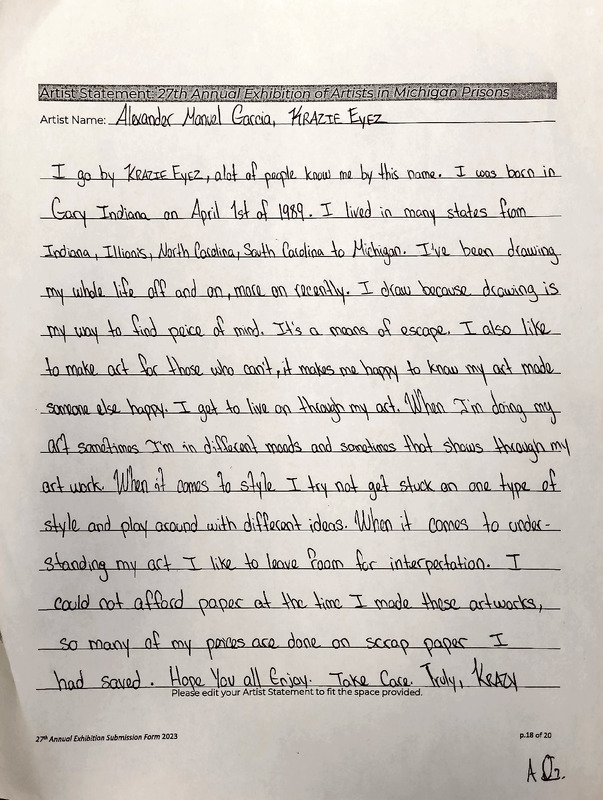 Artist Statement: 27th Annual Exhibition of Artists in Michigan Prisons
Artist Name: Alexander Manuel Garcia, KRAZIE EYEZ
I go by KRAZIE EYEZ, alot of people know me by this name. I was born in
Gary Indiana on April 1st of 1989. I lived in many states from
Indiana, Illionis, North Carolina, South Carolina to Michigan. I've been drawing
my whole life off and on, more on recently. I draw because drawing is
my way to find peice of mind. It's a means of escape. I also like
to make art for those who can't, it makes me happy to know my art made
someone else happy. I get to live on through my art. When I'm doing my
art sometimes I'm in different moods and sometimes that shows through my
art work. When it comes to style I try not get stuck on one type of
style and play around with different ideas. When it comes to under-
standing my art I like to leave room for interpertation. I
could not afford paper at the time I made these artworks,
so many of my peices are done on scrap paper I
had saved. Hope You all Enjoy. Take Care. Truly, KRAZY
Please edit your Artist Statement to fit the space provided.
27th Annual Exhibition Submission Form 2023
p.18 of 20